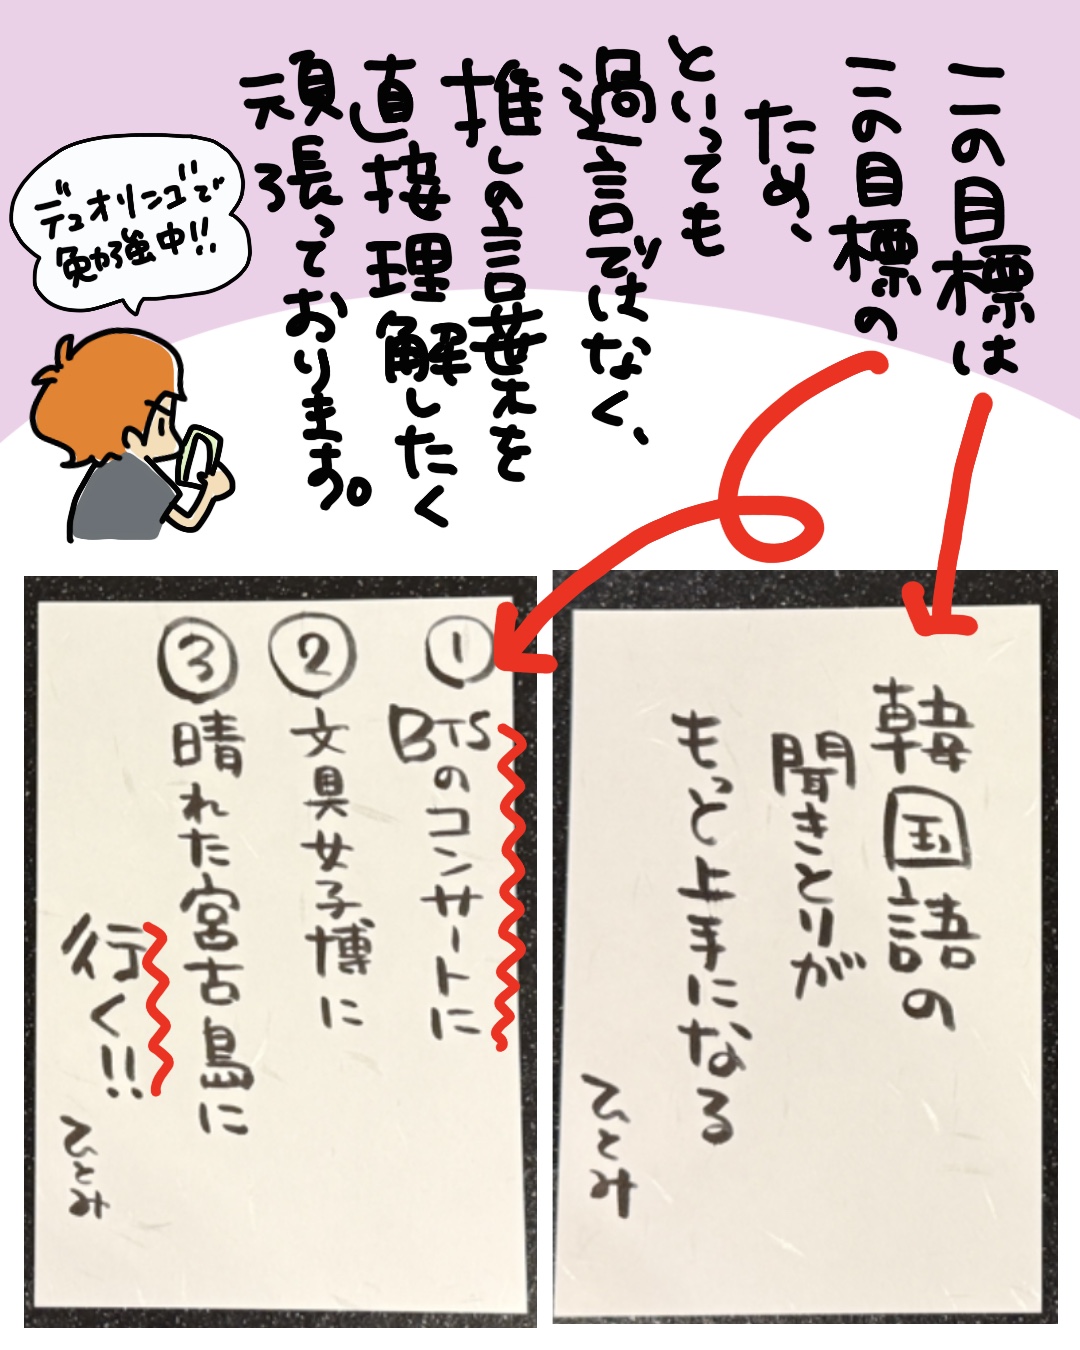 この目標は
この目標の
ため、
といっても
過言ではなく、
推しの言葉を
直接理解したく
頑張っております。
デュオリンゴで
勉強中!!
韓国語の
聞きとりが
もっと上手になる
ひとみ
① BTSのコンサートに
② 文具女子博に
③ 晴れた宮古島に
行く!!
ひとみ